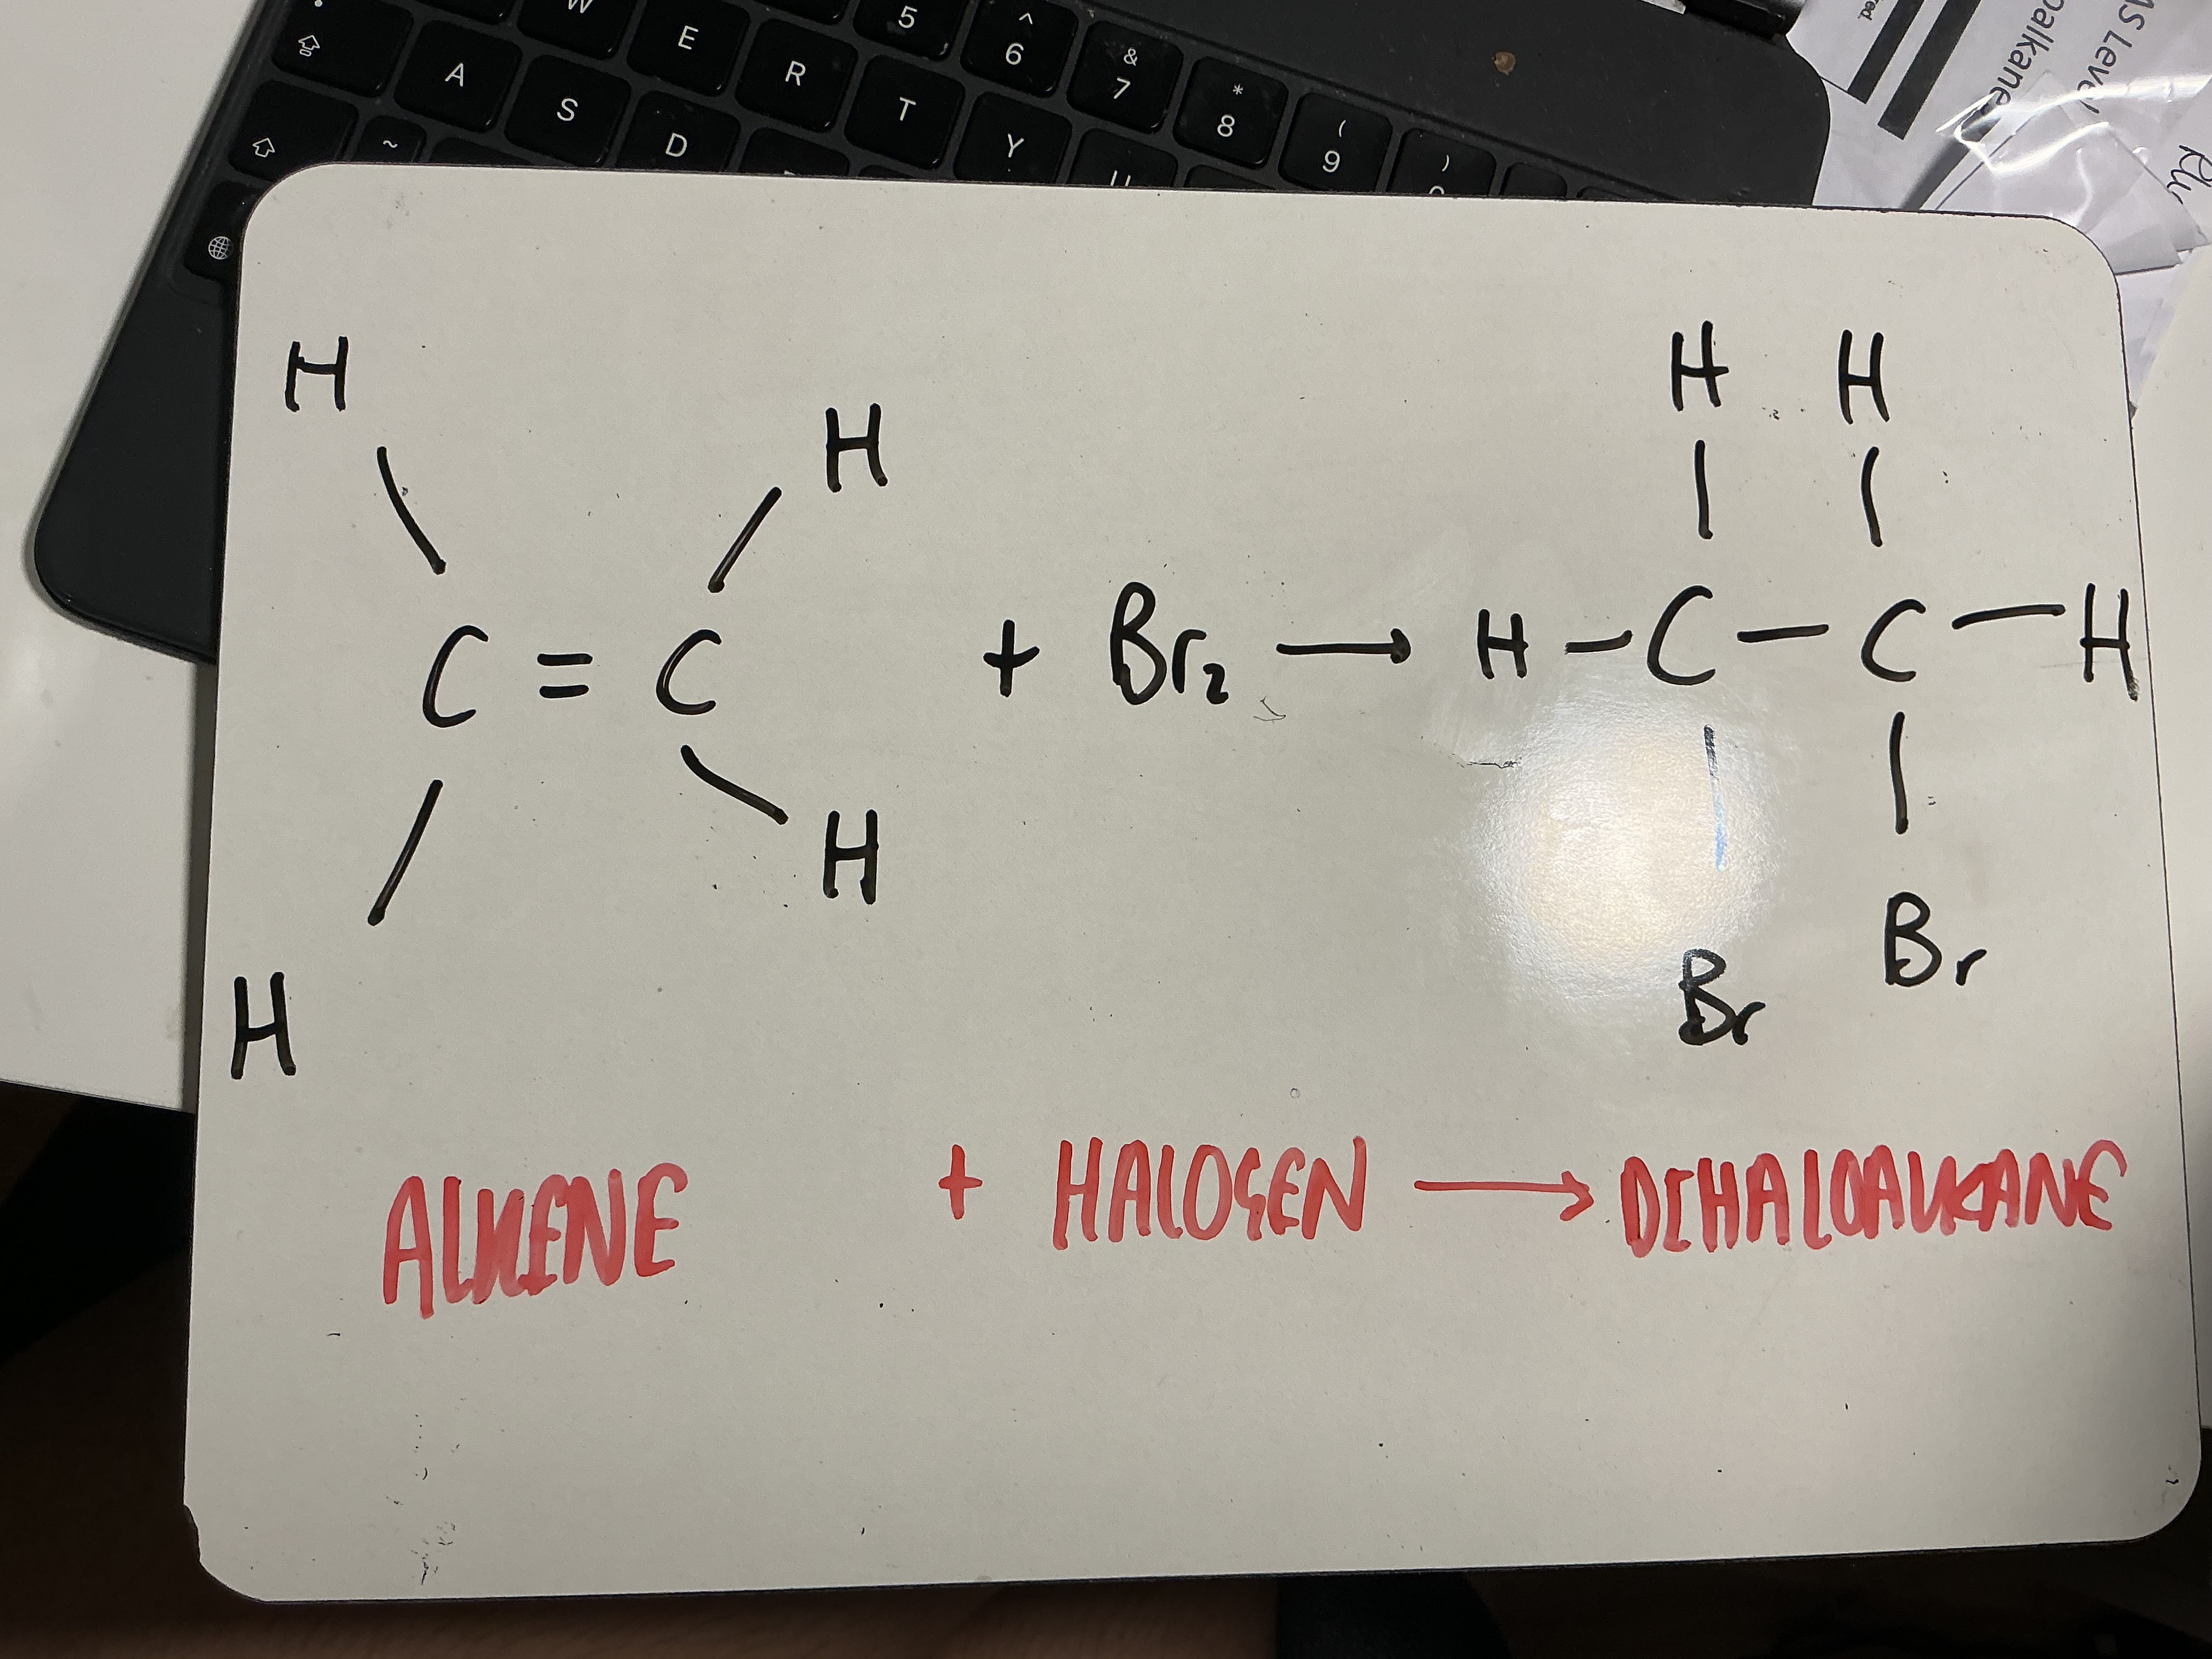 W E R 5 ^ 6 & 7 * 8 ( 9 )
A S D T Y U
~
AS Level
oalkanes
red.
H H H H
C = C + Br₂ → H - C - C - H
H H Br Br
ALKENE + HALOGEN → DIHALOALKANE